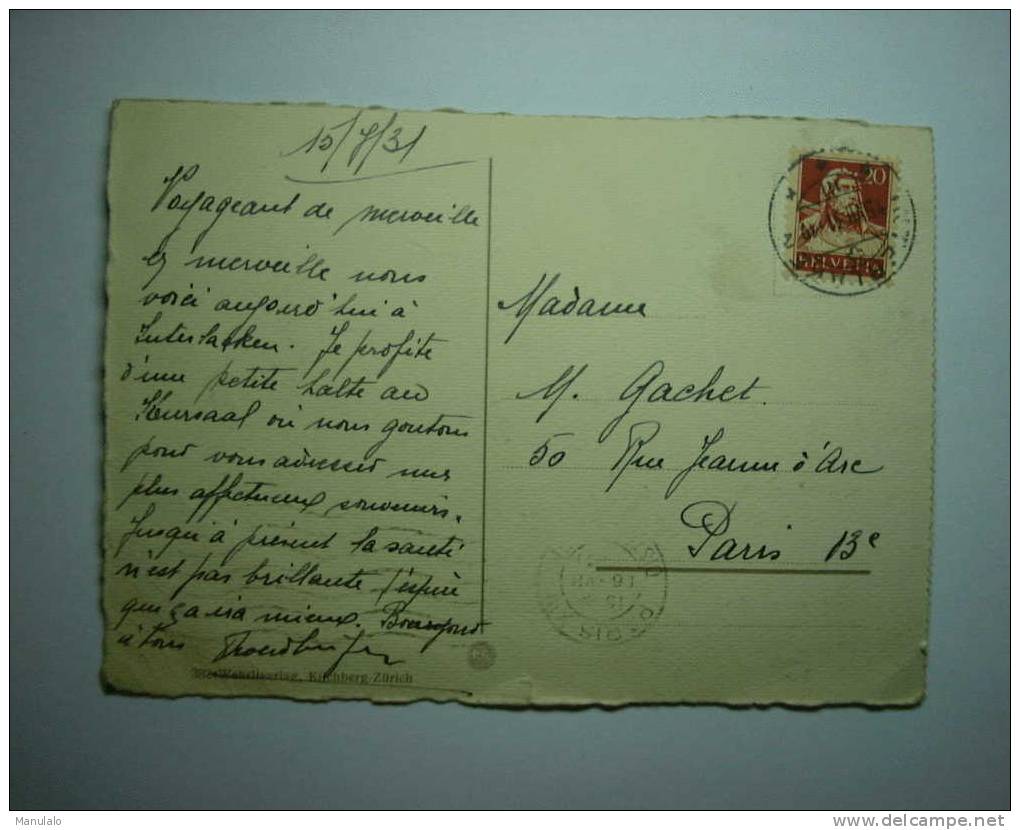 15/7/31
Voyageant de merveille
en merveille nous
voici aujourd'hui à
Interlacken. Je profite
d'une petite halte au
Kursaal où nous goutons
pour vous adresser mes
plus affectueux souvenirs.
Jusqu'à présent la santé
n'est pas brillante j'espère
que ça ira mieux. Bonsjour
à tous
Wehrliverlag, Kilchberg-Zürich
20
HELVETIA
Madame
M. Gachet.
50 Rue Jeanne d'Arc
Paris 13e
Manulalo
www.delcampe.net